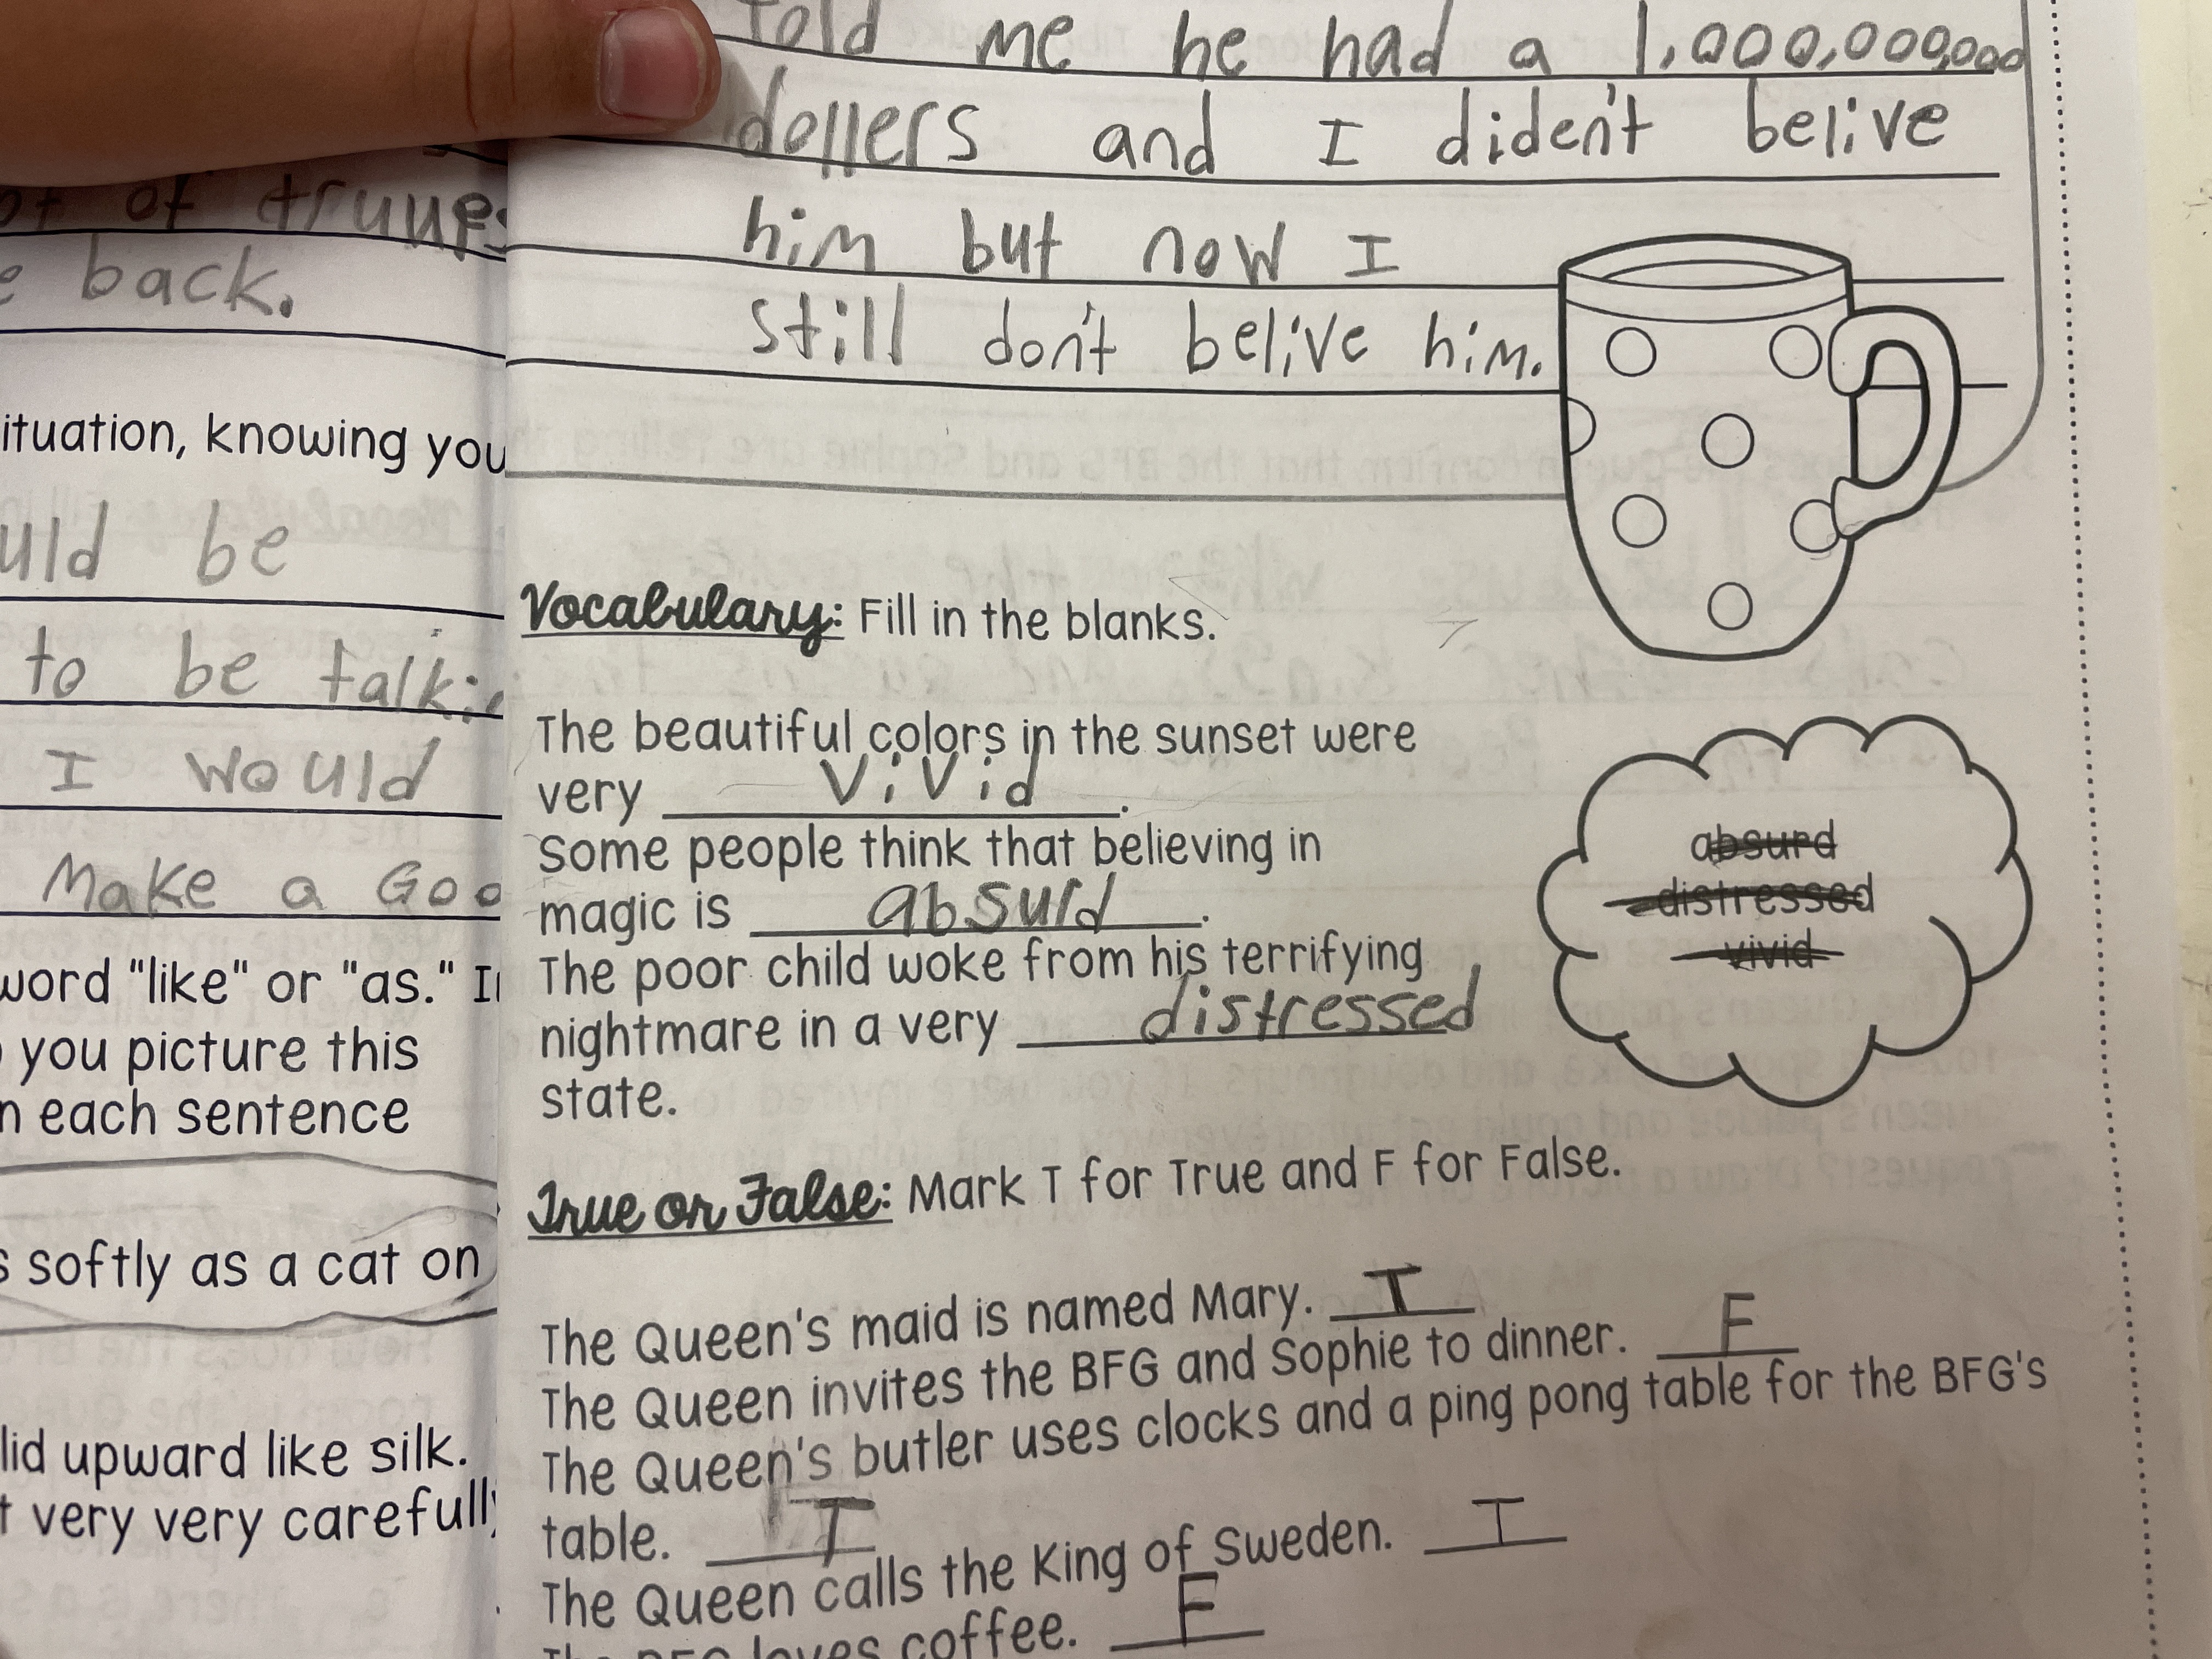 told me he had a 1,000,000,000
dollers and I dident belive
him but now I
still don't belive him.
Vocabulary: Fill in the blanks.
The beautiful colors in the sunset were
very vivid.
Some people think that believing in
magic is absurd.
The poor child woke from his terrifying
nightmare in a very distressed
state.
absurd
distressed
vivid
True or False: Mark T for True and F for False.
The Queen's maid is named Mary. T
The Queen invites the BFG and Sophie to dinner. F
The Queen's butler uses clocks and a ping pong table for the BFG's
table. T
The Queen calls the King of Sweden. T
The BFG loves coffee. F
of
back.
ituation, knowing you
uld be
to be
I would
Make a Goo
word "like" or "as."
you picture this
n each sentence
softly as a cat on
lid upward like silk.
very very carefully